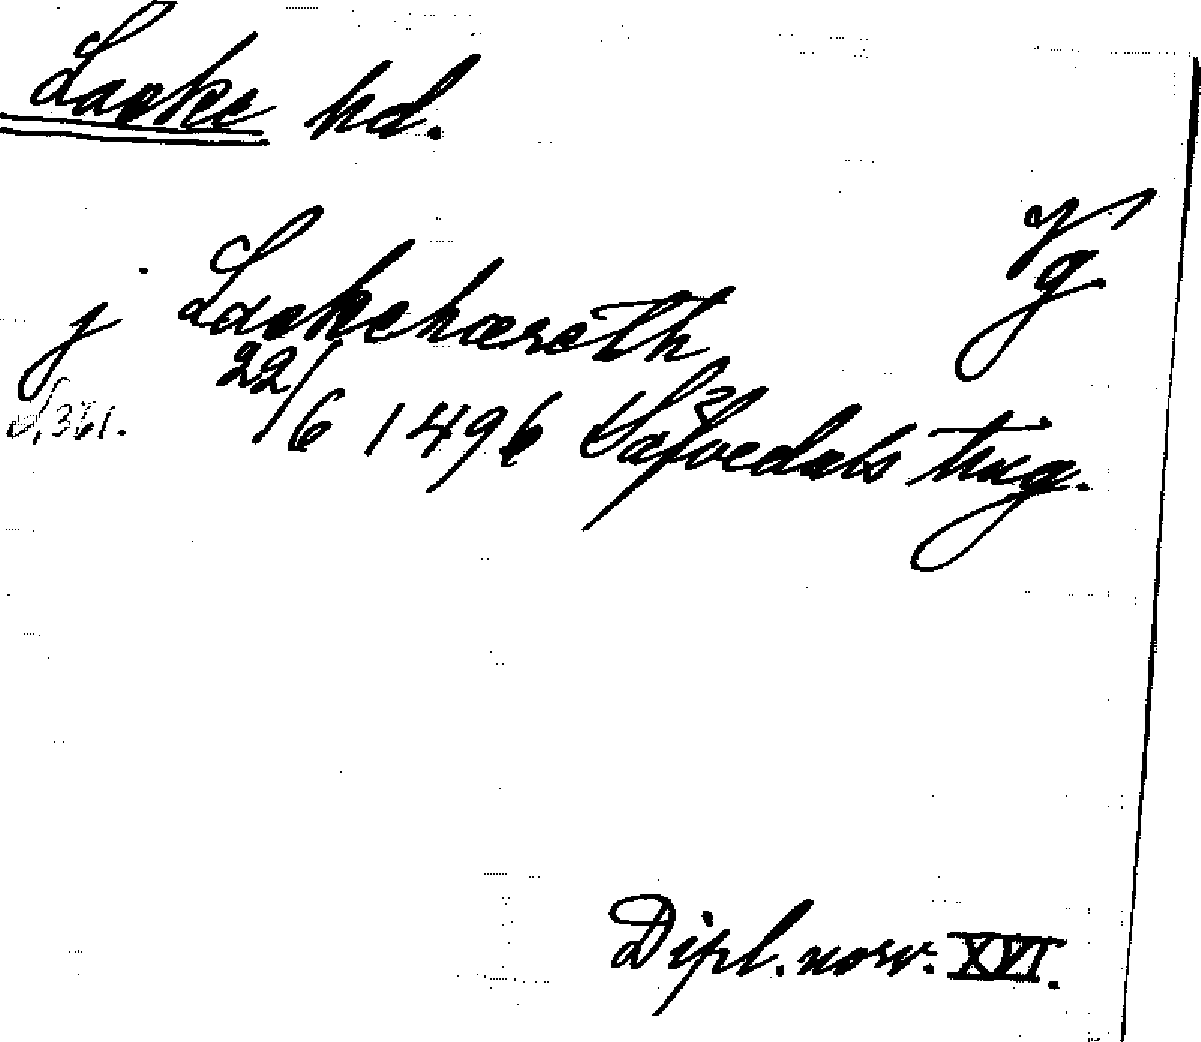 Laske hd.
Vg
j Laskehæreth
S. 361. 22/6 1496 Säfvedals ting.
Dipl. norv. XVI.